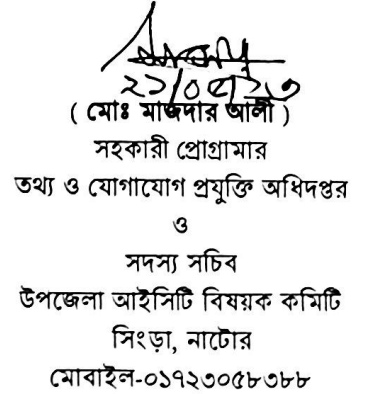 ২১/০৫/২৩
( মোঃ মাজদার আলী )
সহকারী প্রোগ্রামার
তথ্য ও যোগাযোগ প্রযুক্তি অধিদপ্তর
ও
সদস্য সচিব
উপজেলা আইসিটি বিষয়ক কমিটি
সিংড়া, নাটোর
মোবাইল-০১৭২৩০৫৮৩৮৮